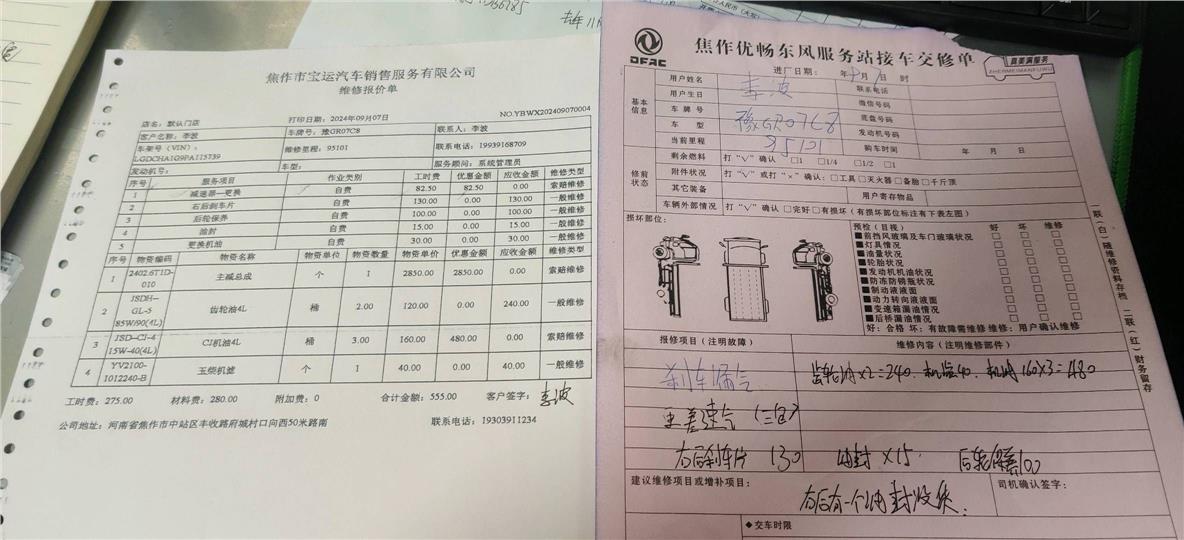 焦作市宝运汽车销售服务有限公司
维修报价单
NO.YBWX202409070004
店名：默认门店 打印日期：2024年09月07日
客户名称：李波 车牌号：豫GR07C8 联系人：李波
车架号（VIN）：LGDCHA1G9PA115739 维修里程：95101 联系电话：19939168709
发动机号： 车型： 服务顾问：系统管理员
序号 服务项目 作业类别 工时费 优惠金额 应收金额 维修类型
1 减速器—更换 自费 82.50 82.50 0.00 索赔维修
2 右后刹车片 自费 130.00 0.00 130.00 一般维修
3 后轮保养 自费 100.00 0.00 100.00 一般维修
4 油封 自费 15.00 0.00 15.00 一般维修
5 更换机油 自费 30.00 0.00 30.00 一般维修
序号 物资编码 物资名称 物资单位 物资数量 物资单价 优惠金额 应收金额 维修类型
1 2402.6T1D-010 主减总成 个 1 2850.00 2850.00 0.00 索赔维修
2 JSDH—GL-5 85W/90(4L) 齿轮油4L 桶 2.00 120.00 0.00 240.00 一般维修
3 JSD—CI-4 15W-40(4L) CI机油4L 桶 3.00 160.00 480.00 0.00 索赔维修
4 YV2100-1012240-B 玉柴机滤 个 1 40.00 0.00 40.00 一般维修
工时费：275.00 材料费：280.00 附加费：0 合计金额：555.00 客户签字：李波
公司地址：河南省焦作市中站区丰收路府城村口向西50米路南 联系电话：19303911234
DFAC
焦作优畅东风服务站接车交修单
真美满服务
ZHENMEIMANFUWU
进厂日期： 年 月 日 时
基本信息
用户姓名 李波 联系电话
用户生日 微信号码
车牌号 豫GR07C8 底盘号码
车型 发动机号码
当前里程 95101 购车时间 年 月 日
修前状态
剩余燃料 打“√”确认 □1 □1/4 □1/2 □1
附件状况 打“√”或打“×”确认：□工具□灭火器□备胎□千斤顶
其它装备 用户寄存物品
车辆外部情况 打“√”确认□完好□有损坏（有损坏部位标注有下表左图）
损坏部位：
预检（目视） 好 坏 维修
■前挡风玻璃及车门玻璃状况 □ □ □
■灯具情况 □ □ □
■油量状况 □ □ □
■轮胎状况 □ □ □
■发动机机油状况 □ □ □
■防冻防锈瓶状况 □ □ □
■制动液液面 □ □ □
■动力转向液液面 □ □ □
■变速箱漏油情况 □ □ □
■后桥漏油情况 □ □ □
好：合格 坏：有故障需维修 维修：用户确认维修
一联（白）随维修资料存档 二联（红）财务留存
报修项目（注明故障） 维修内容（注明维修部件）
刹车漏气 齿轮油×2=240．机滤40．机油160×3=480
差速气（三包）
右后刹车片 130 油封×15 后轮保养100
建议维修项目或增补项目： 司机确认签字：
右后有一个油封没换．
◆交车时限